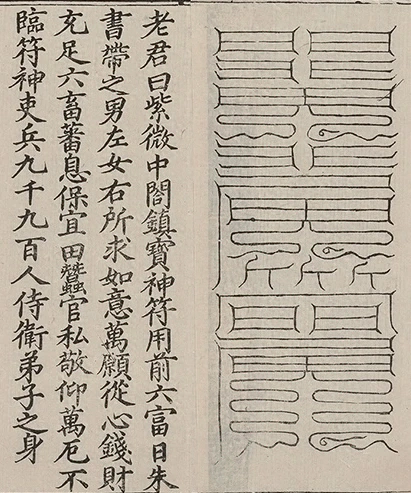 老君曰紫微中閤鎮寶神符用前六富日朱
書帶之男左女右所求如意萬願從心錢財
充足六畜蕃息保宜田蠶官私敬仰萬厄不
臨符神吏兵九千九百人侍衛弟子之身